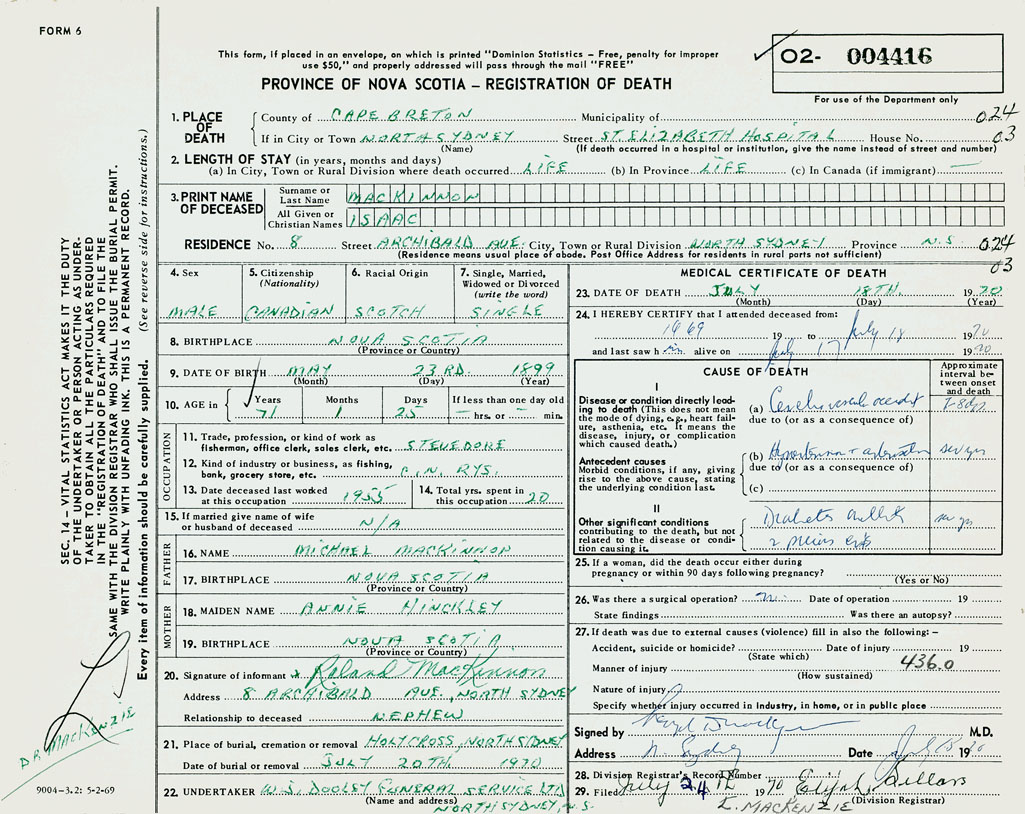 FORM 6
This form, if placed in an envelope, on which is printed "Dominion Statistics – Free, penalty for improper
use $50," and properly addressed will pass through the mail "FREE"
O2- 004416
PROVINCE OF NOVA SCOTIA – REGISTRATION OF DEATH
For use of the Department only
1. PLACE OF DEATH
County of CAPE BRETON Municipality of 024
If in City or Town NORTH SYDNEY Street ST. ELIZABETH HOSPITAL House No. 03
(Name) (If death occurred in a hospital or institution, give the name instead of street and number)
2. LENGTH OF STAY (in years, months and days)
(a) In City, Town or Rural Division where death occurred LIFE (b) In Province LIFE (c) In Canada (if immigrant) —
3. PRINT NAME OF DECEASED
Surname or Last Name MACKINNON
All Given or Christian Names ISAAC
RESIDENCE No. 8 Street ARCHIBALD AVE. City, Town or Rural Division NORTH SYDNEY Province N.S. 024
(Residence means usual place of abode. Post Office Address for residents in rural parts not sufficient) 03
4. Sex
MALE
5. Citizenship
(Nationality)
CANADIAN
6. Racial Origin
SCOTCH
7. Single, Married,
Widowed or Divorced
(write the word)
SINGLE
8. BIRTHPLACE NOVA SCOTIA
(Province or Country)
9. DATE OF BIRTH MAY 23RD. 1899
(Month) (Day) (Year)
10. AGE in
Years Months Days If less than one day old
71 1 25 – hrs. or – min.
OCCUPATION
11. Trade, profession, or kind of work as
fisherman, office clerk, sales clerk, etc. STEVEDORE
12. Kind of industry or business, as fishing,
bank, grocery store, etc. C.N. RYS.
13. Date deceased last worked
at this occupation 1955
14. Total yrs. spent in
this occupation 20
15. If married give name of wife
or husband of deceased N/A
FATHER
16. NAME MICHAEL MACKINNON
17. BIRTHPLACE NOVA SCOTIA
(Province or Country)
MOTHER
18. MAIDEN NAME ANNIE HINCKLEY
19. BIRTHPLACE NOVA SCOTIA
(Province or Country)
20. Signature of informant Roland MacKinnon
Address 8 ARCHIBALD AVE., NORTH SYDNEY
Relationship to deceased NEPHEW
21. Place of burial, cremation or removal HOLY CROSS, NORTH SYDNEY
Date of burial or removal JULY 20TH. 1970
22. UNDERTAKER W.J. DOOLEY FUNERAL SERVICE LTD
(Name and address) NORTH SYDNEY, N.S.
MEDICAL CERTIFICATE OF DEATH
23. DATE OF DEATH JULY 18TH. 1970
(Month) (Day) (Year)
24. I HEREBY CERTIFY that I attended deceased from:
1969 19 to July 18 1970
and last saw him alive on July 17 1970
CAUSE OF DEATH
Approximate
interval be-
tween onset
and death
I
Disease or condition directly lead-
ing to death (This does not mean
the mode of dying, e.g., heart fail-
ure, asthenia, etc. It means the
disease, injury, or complication
which caused death.)
(a)
due to (or as a consequence of)
Antecedent causes
Morbid conditions, if any, giving
rise to the above cause, stating
the underlying condition last.
(b)
due to (or as a consequence of)
(c)
II
Other significant conditions
contributing to the death, but not
related to the disease or condi-
tion causing it.
Diabetes
25. If a woman, did the death occur either during
pregnancy or within 90 days following pregnancy?
(Yes or No)
26. Was there a surgical operation? Date of operation 19
State findings Was there an autopsy?
27. If death was due to external causes (violence) fill in also the following: –
Accident, suicide or homicide? Date of injury 19
(State which)
Manner of injury 436.0
(How sustained)
Nature of injury
Specify whether injury occurred in Industry, in home, or in public place
Signed by M.D.
Address N. Sydney Date 1970
28. Division Registrar's Record Number
29. Filed July 24th 1970 Elijah Sellars
(Division Registrar)
E. MACKENZIE
SEC. 14 – VITAL STATISTICS ACT MAKES IT THE DUTY
OF THE UNDERTAKER OR PERSON ACTING AS UNDER-
TAKER TO OBTAIN ALL THE PARTICULARS REQUIRED
IN THE "REGISTRATION OF DEATH" AND TO FILE THE
SAME WITH THE DIVISION REGISTRAR WHO SHALL ISSUE THE BURIAL PERMIT.
WRITE PLAINLY WITH UNFADING INK. THIS IS A PERMANENT RECORD.
Every item of information should be carefully supplied. (See reverse side for instructions.)
DR MACKENZIE
9004-3.2: 5-2-69